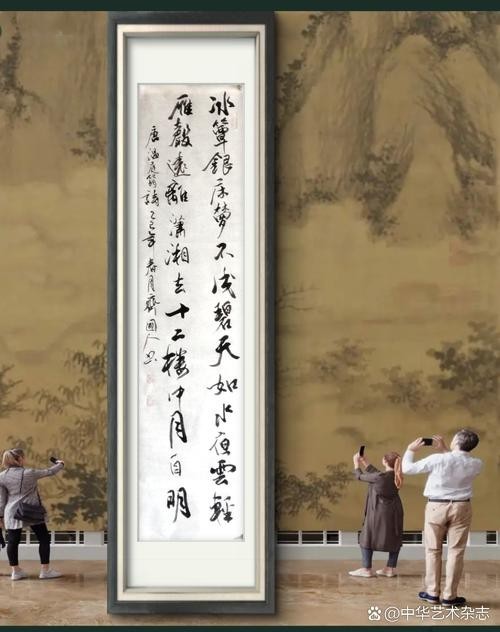 冰簟銀床夢不成碧天如水夜雲輕
雁聲遠離瀟湘去十二樓中月自明
唐溫庭筠詩乙巳年春月齊國人書
@中华艺术杂志